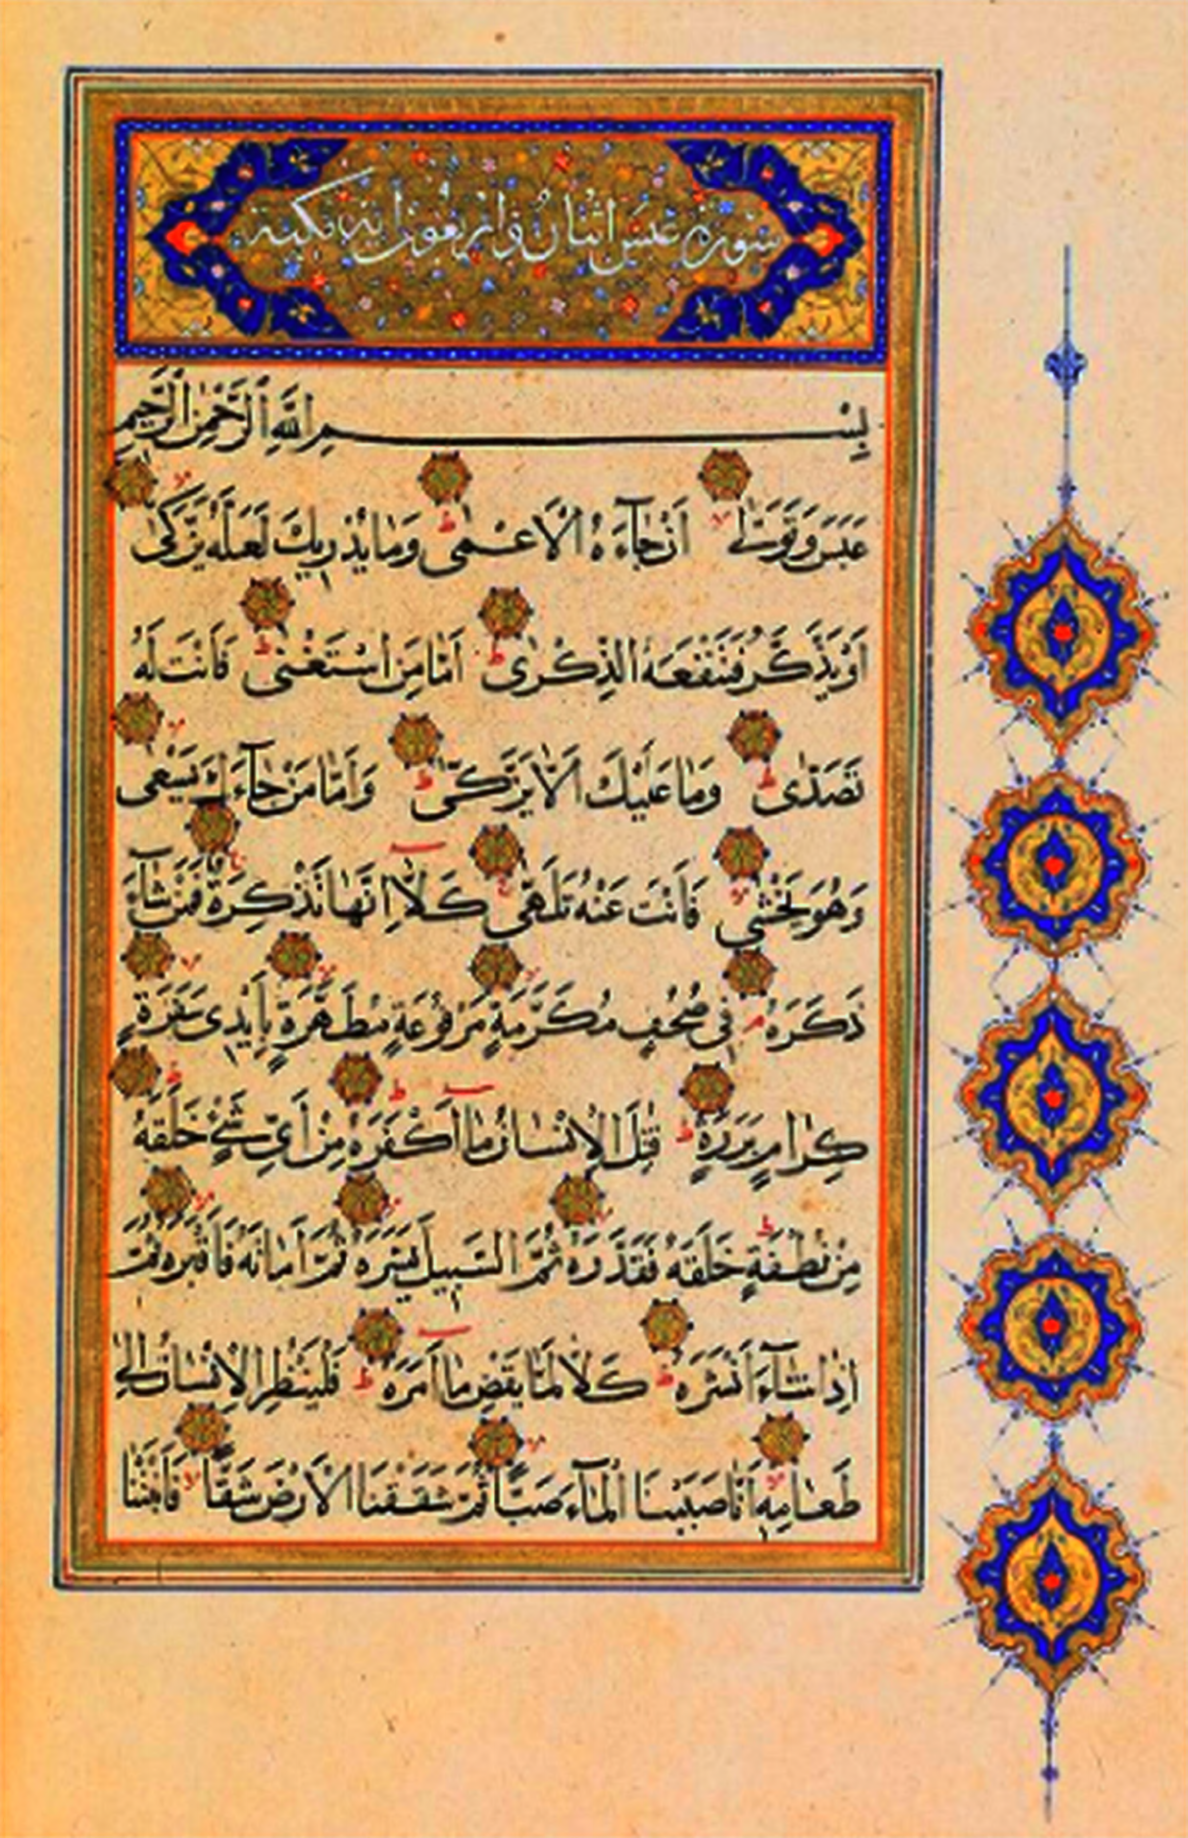 سورة عبس اثنان واربعون اية مكية
بِسْمِ اللَّهِ الرَّحْمٰنِ الرَّحِيمِ
عَبَسَ وَتَوَلّٰى ۙ اَنْ جَآءَهُ الْاَعْمٰى ؕ وَمَا يُدْرِيكَ لَعَلَّهُ يَزَّكّٰى ۙ
اَوْ يَذَّكَّرُ فَتَنْفَعَهُ الذِّكْرٰى ؕ اَمَّا مَنِ اسْتَغْنٰى ؕ فَاَنْتَ لَهُ
تَصَدّٰى ؕ وَمَا عَلَيْكَ اَلَّا يَزَّكّٰى ؕ وَاَمَّا مَنْ جَآءَكَ يَسْعٰى ۙ
وَهُوَ يَخْشٰى ۙ فَاَنْتَ عَنْهُ تَلَهّٰى ۚ كَلَّا اِنَّهَا تَذْكِرَةٌ ۚ فَمَنْ شَآءَ
ذَكَرَهُ ۘ فِي صُحُفٍ مُكَرَّمَةٍ ۙ مَرْفُوعَةٍ مُطَهَّرَةٍ ۙ بِاَيْدِي سَفَرَةٍ ۙ
كِرَامٍ بَرَرَةٍ ؕ قُتِلَ الْاِنْسَانُ مَا اَكْفَرَهُ ؕ مِنْ اَيِّ شَيْءٍ خَلَقَهُ ؕ
مِنْ نُطْفَةٍ ؕ خَلَقَهُ فَقَدَّرَهُ ۙ ثُمَّ السَّبِيلَ يَسَّرَهُ ۙ ثُمَّ اَمَاتَهُ فَاَقْبَرَهُ ۙ ثُمَّ
اِذَا شَآءَ اَنْشَرَهُ ؕ كَلَّا لَمَّا يَقْضِ مَا اَمَرَهُ ؕ فَلْيَنْظُرِ الْاِنْسَانُ اِلٰى
طَعَامِهِ ۙ اَنَّا صَبَبْنَا الْمَآءَ صَبًّا ۙ ثُمَّ شَقَقْنَا الْاَرْضَ شَقًّا ۙ فَاَنْبَتْنَا